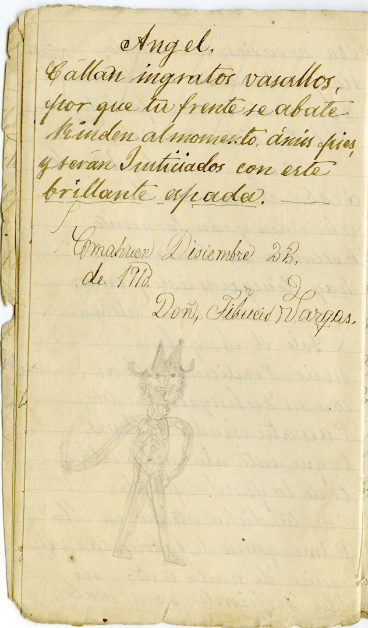 Angel.
Callan ingratos vasallos,
por que tu frente se abate
Rinden al momento, á mis pies,
y serán Justiciados con este
brillante espada.
Comahuen Disiembre 22,
de 191
Don, Tibucio Vargas.